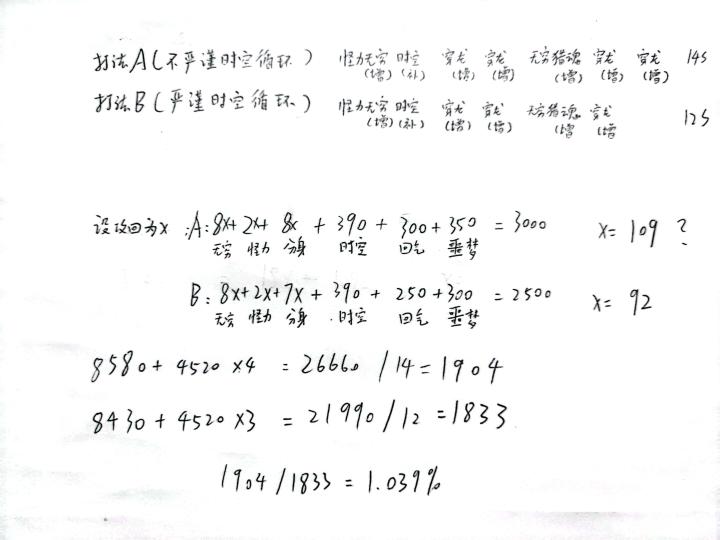 打法A(不严谨时空循环) 怪力无穷 时空 穿龙 穿龙 无穷猎魂 穿龙 穿龙 14S
(增) (补) (增) (增) (增) (增) (增)
打法B(严谨时空循环) 怪力无穷 时空 穿龙 穿龙 无穷猎魂 穿龙 12S
(增) (补) (增) (增) (增 (增
设攻回为x :A:8x+2x+ 8x + 390 + 300+350 = 3000 x= 109 ?
无穷 怪力 分身 时空 回气 噩梦
B: 8x+2x+7x+ 390 + 250+300 = 2500 x= 92
无穷 怪力 分身 时空 回气 噩梦
8580+ 4520 ×4 = 26660 /14=1904
8430+4520×3 = 21990/12=1833
1904/1833=1.039%